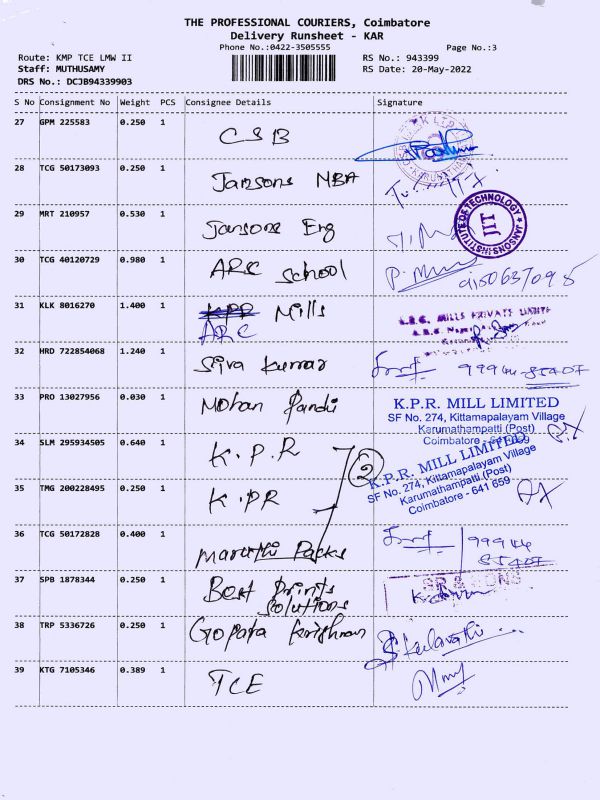 THE PROFESSIONAL COURIERS, Coimbatore
Delivery Runsheet - KAR
Phone No.:0422-3505555
Page No.:3
Route: KMP TCE LMW II
RS No.: 943399
Staff: MUTHUSAMY
RS Date: 20-May-2022
DRS No.: DCJB94339903
S No Consignment No Weight PCS Consignee Details Signature
27 GPM 225583 0.250 1 CSB
28 TCG 50173093 0.250 1 Jansons MBA
29 MRT 210957 0.530 1 Jansons Eng
JANSONS INSTITUTE OF TECHNOLOGY
JIT
30 TCG 40120729 0.980 1 ARC School
31 KLK 8016270 1.400 1 KPR Mills
ARC
MILLS PRIVATE LIMITE
32 HRD 722854068 1.240 1 Siva Kumar 99944 58407
33 PRO 13027956 0.030 1 Mohan Pandi
K.P.R. MILL LIMITED
SF No. 274, Kittamapalayam Village
Karumathampatti (Post)
Coimbatore - 641 659
34 SLM 295934505 0.640 1 K.P.R
2
K.P.R. MILL LIMITED
SF No. 274, Kittamapalayam Village
Karumathampatti (Post)
Coimbatore - 641 659
35 TMG 200228495 0.250 1 K.PR
36 TCG 50172828 0.400 1 Maruthi Packs 99944
58407
37 SPB 1878344 0.250 1 Best Prints
Solutions
& SONS
38 TRP 5336726 0.250 1 Gopala Krishnan
39 KTG 7105346 0.389 1 TCE